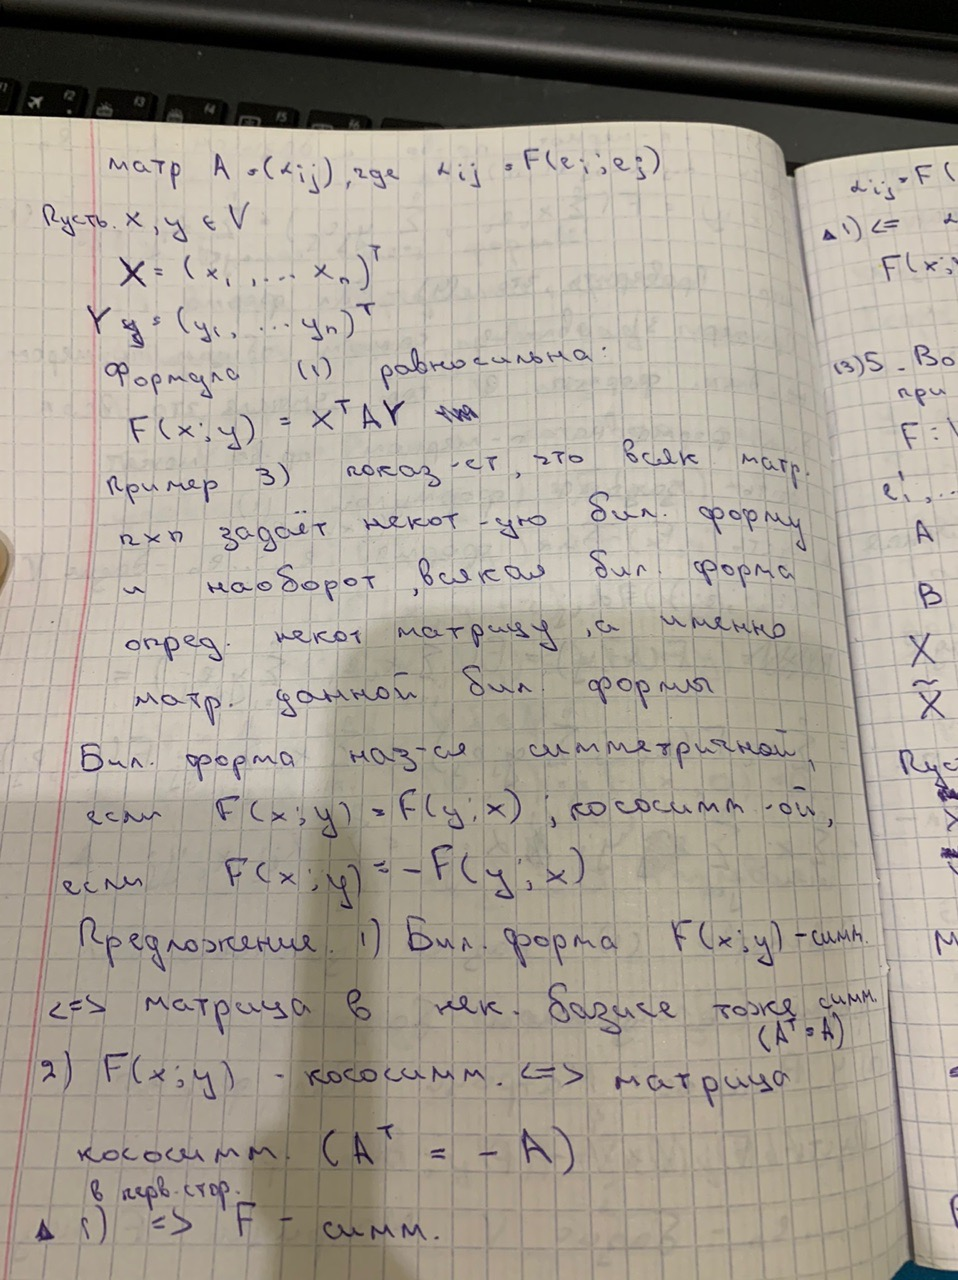 матр A = (αij), где αij = F(ei; ej)
Пусть x, y ∈ V
X = (x1, ... xn)^T
Y = (y1, ... yn)^T
Формула (1) равносильна:
F(x; y) = X^T A Y
Пример 3) показ-ет, что всяк матр.
n×n задаёт некот-ую бил. форму
и наоборот, всякая бил. форма
опред. некот матрицу, а именно
матр. данной бил. формы
Бил. форма наз-ся симметричной,
если F(x; y) = F(y; x); кососимм-ой,
если F(x; y) = -F(y; x)
Предложение. 1) Бил. форма F(x; y) - симм.
<=> матрица в нек. базисе тоже симм.
(A^T = A)
2) F(x; y) - кососимм. <=> матрица
кососимм. (A^T = -A)
в перв. стор.
Δ 1) => F - симм.
αij = F(
Δ 1) <=
F(x; y
(3) 5. Во
при
F:
e'1, ...
A
B
X
X̃
Пус